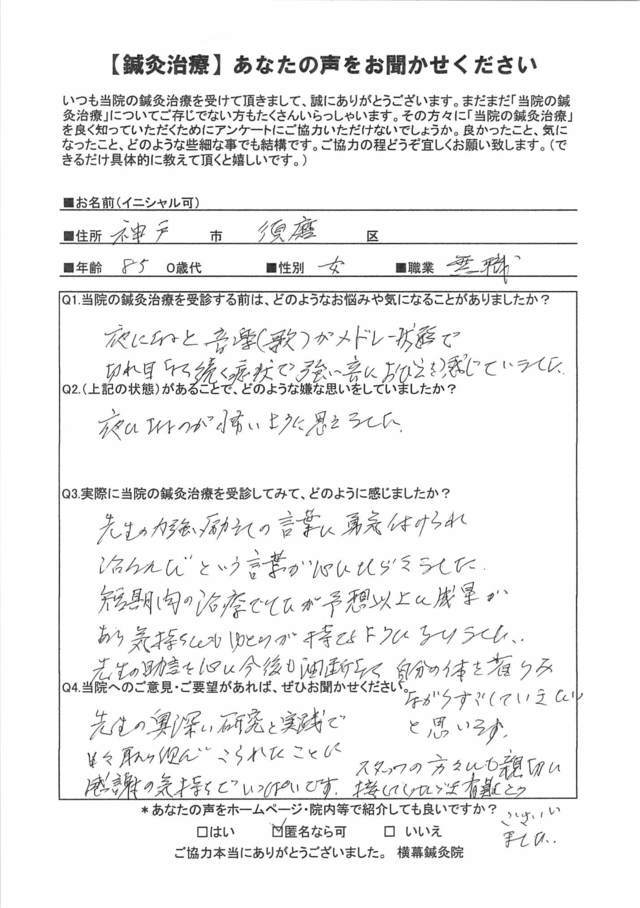 【鍼灸治療】あなたの声をお聞かせください
いつも当院の鍼灸治療を受けて頂きまして、誠にありがとうございます。まだまだ「当院の鍼
灸治療」についてご存じでない方もたくさんいらっしゃいます。その方々に「当院の鍼灸治療」
を良く知っていただくためにアンケートにご協力いただけないでしょうか。良かったこと、気に
なったこと、どのような些細な事でも結構です。ご協力の程どうぞ宜しくお願い致します。(で
きるだけ具体的に教えて頂くと嬉しいです。)
■お名前(イニシャル可)
■住所 神戸 市 須磨 区
■年齢 85 0歳代 ■性別 女 ■職業 無職
Q1.当院の鍼灸治療を受診する前は、どのようなお悩みや気になることがありましたか?
夜になると音楽(歌)がメドレー状態で
切れ目なく続く症状で強い音におびえを感じていました。
Q2.(上記の状態)があることで、どのような嫌な思いをしていましたか?
夜になるのが怖いように思えました。
Q3.実際に当院の鍼灸治療を受診してみて、どのように感じましたか?
先生の力強い励ましの言葉に勇気付けられ
治らんびという言葉が心にひびきました。
短期内の治療でしたが予想以上に成果が
あり気持ちにもゆとりが持てるようになりました。
先生の助言を心に今後も油断なく自分の体を
ながらすごしていきたい
と思います。
Q4.当院へのご意見・ご要望があれば、ぜひお聞かせください。
先生の奥深い研究と実践で
日々取り組んでこられたことに
感謝の気持ちでいっぱいです。
スタッフの方々にも親切に
接していただき有難とう
ございい
ました。
*あなたの声をホームページ・院内等で紹介しても良いですか?
□はい ☑匿名なら可 □いいえ
ご協力本当にありがとうございました。 横幕鍼灸院